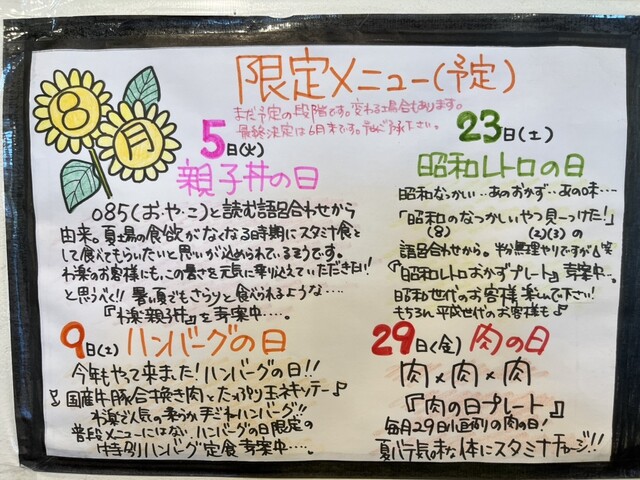 8月
限定メニュー(予定)
まだ予定の段階です。変わる場合もあります。
最終決定は6月末です。予めご了承下さい。
5日(火)
親子丼の日
085(お・や・こ)と読む語呂合わせから
由来。夏場の食欲がなくなる時期にスタミナ食と
して食べてもらいたいと思いが込められているそうです。
わ楽のお客様にも、この暑さを元気に乗り越えていただきたい!
と思うべく!! 暑い夏でもさらりと食べられるような・・・・
『わ楽親子丼』を考案中・・・・。
9日(土)
ハンバーグの日
今年もやって来ました!ハンバーグの日!!
国産牛豚合挽き肉とたっぷり玉ネギッテ~♪
わ楽で人気の柔らか手ごねハンバーグ!!
普段メニューにはない、ハンバーグの日限定の
特別ハンバーグ定食考案中・・・・。
23日(土)
昭和レトロの日
昭和なつかしい・・あのおかず・・あの味・・・
「昭和のなつかしいやつ見ーっけた!」
(8) (2)(3)の
語呂合わせから。半分無理やりですが笑
『昭和レトロおかずプレート』考案中・・。
昭和世代のお客様楽しんで下さい!
もちろん平成世代のお客様も♪
29日(金)
肉の日
肉×肉×肉
『肉の日プレート』
毎月29日恒例の肉の日!
夏バテ気味な体にスタミナチャージ!!